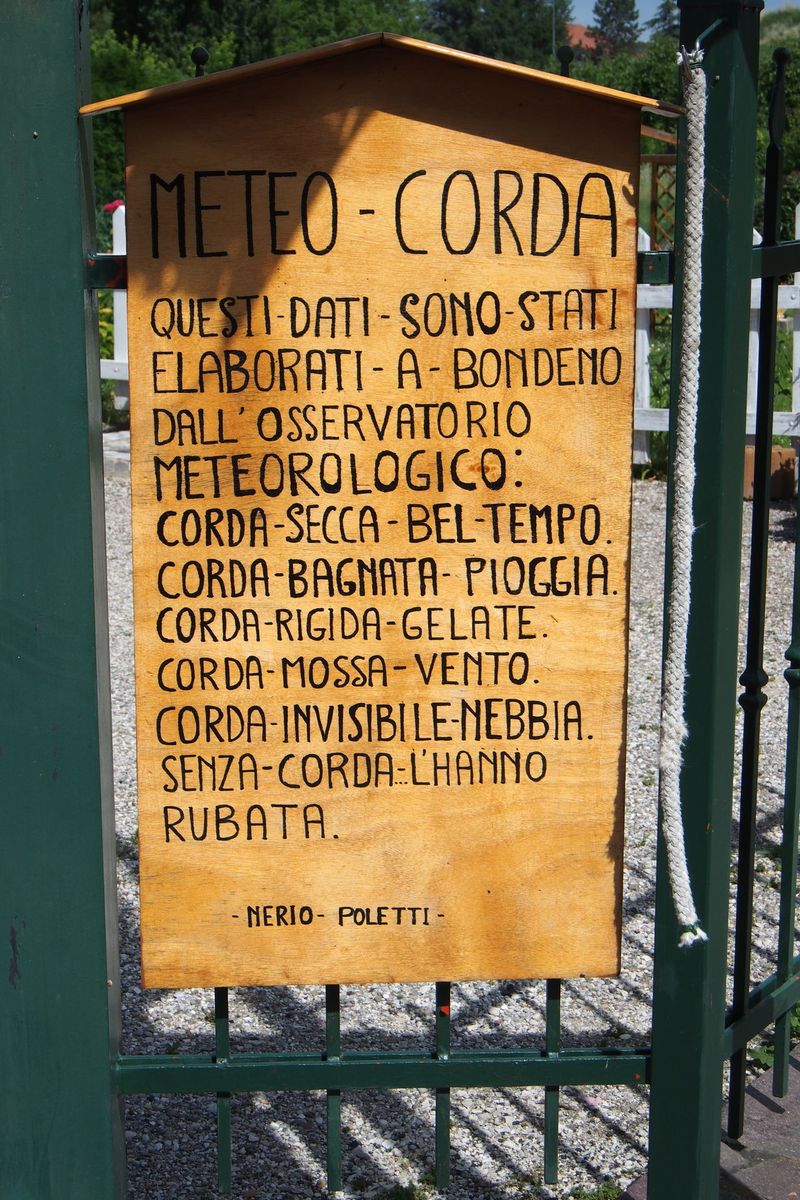 METEO-CORDA
QUESTI-DATI-SONO-STATI
ELABORATI-A-BONDENO
DALL'OSSERVATORIO
METEOROLOGICO:
CORDA-SECCA-BEL-TEMPO.
CORDA-BAGNATA-PIOGGIA.
CORDA-RIGIDA-GELATE.
CORDA-MOSSA-VENTO.
CORDA-INVISIBILE-NEBBIA.
SENZA-CORDA-L'HANNO
RUBATA.
-NERIO-POLETTI-